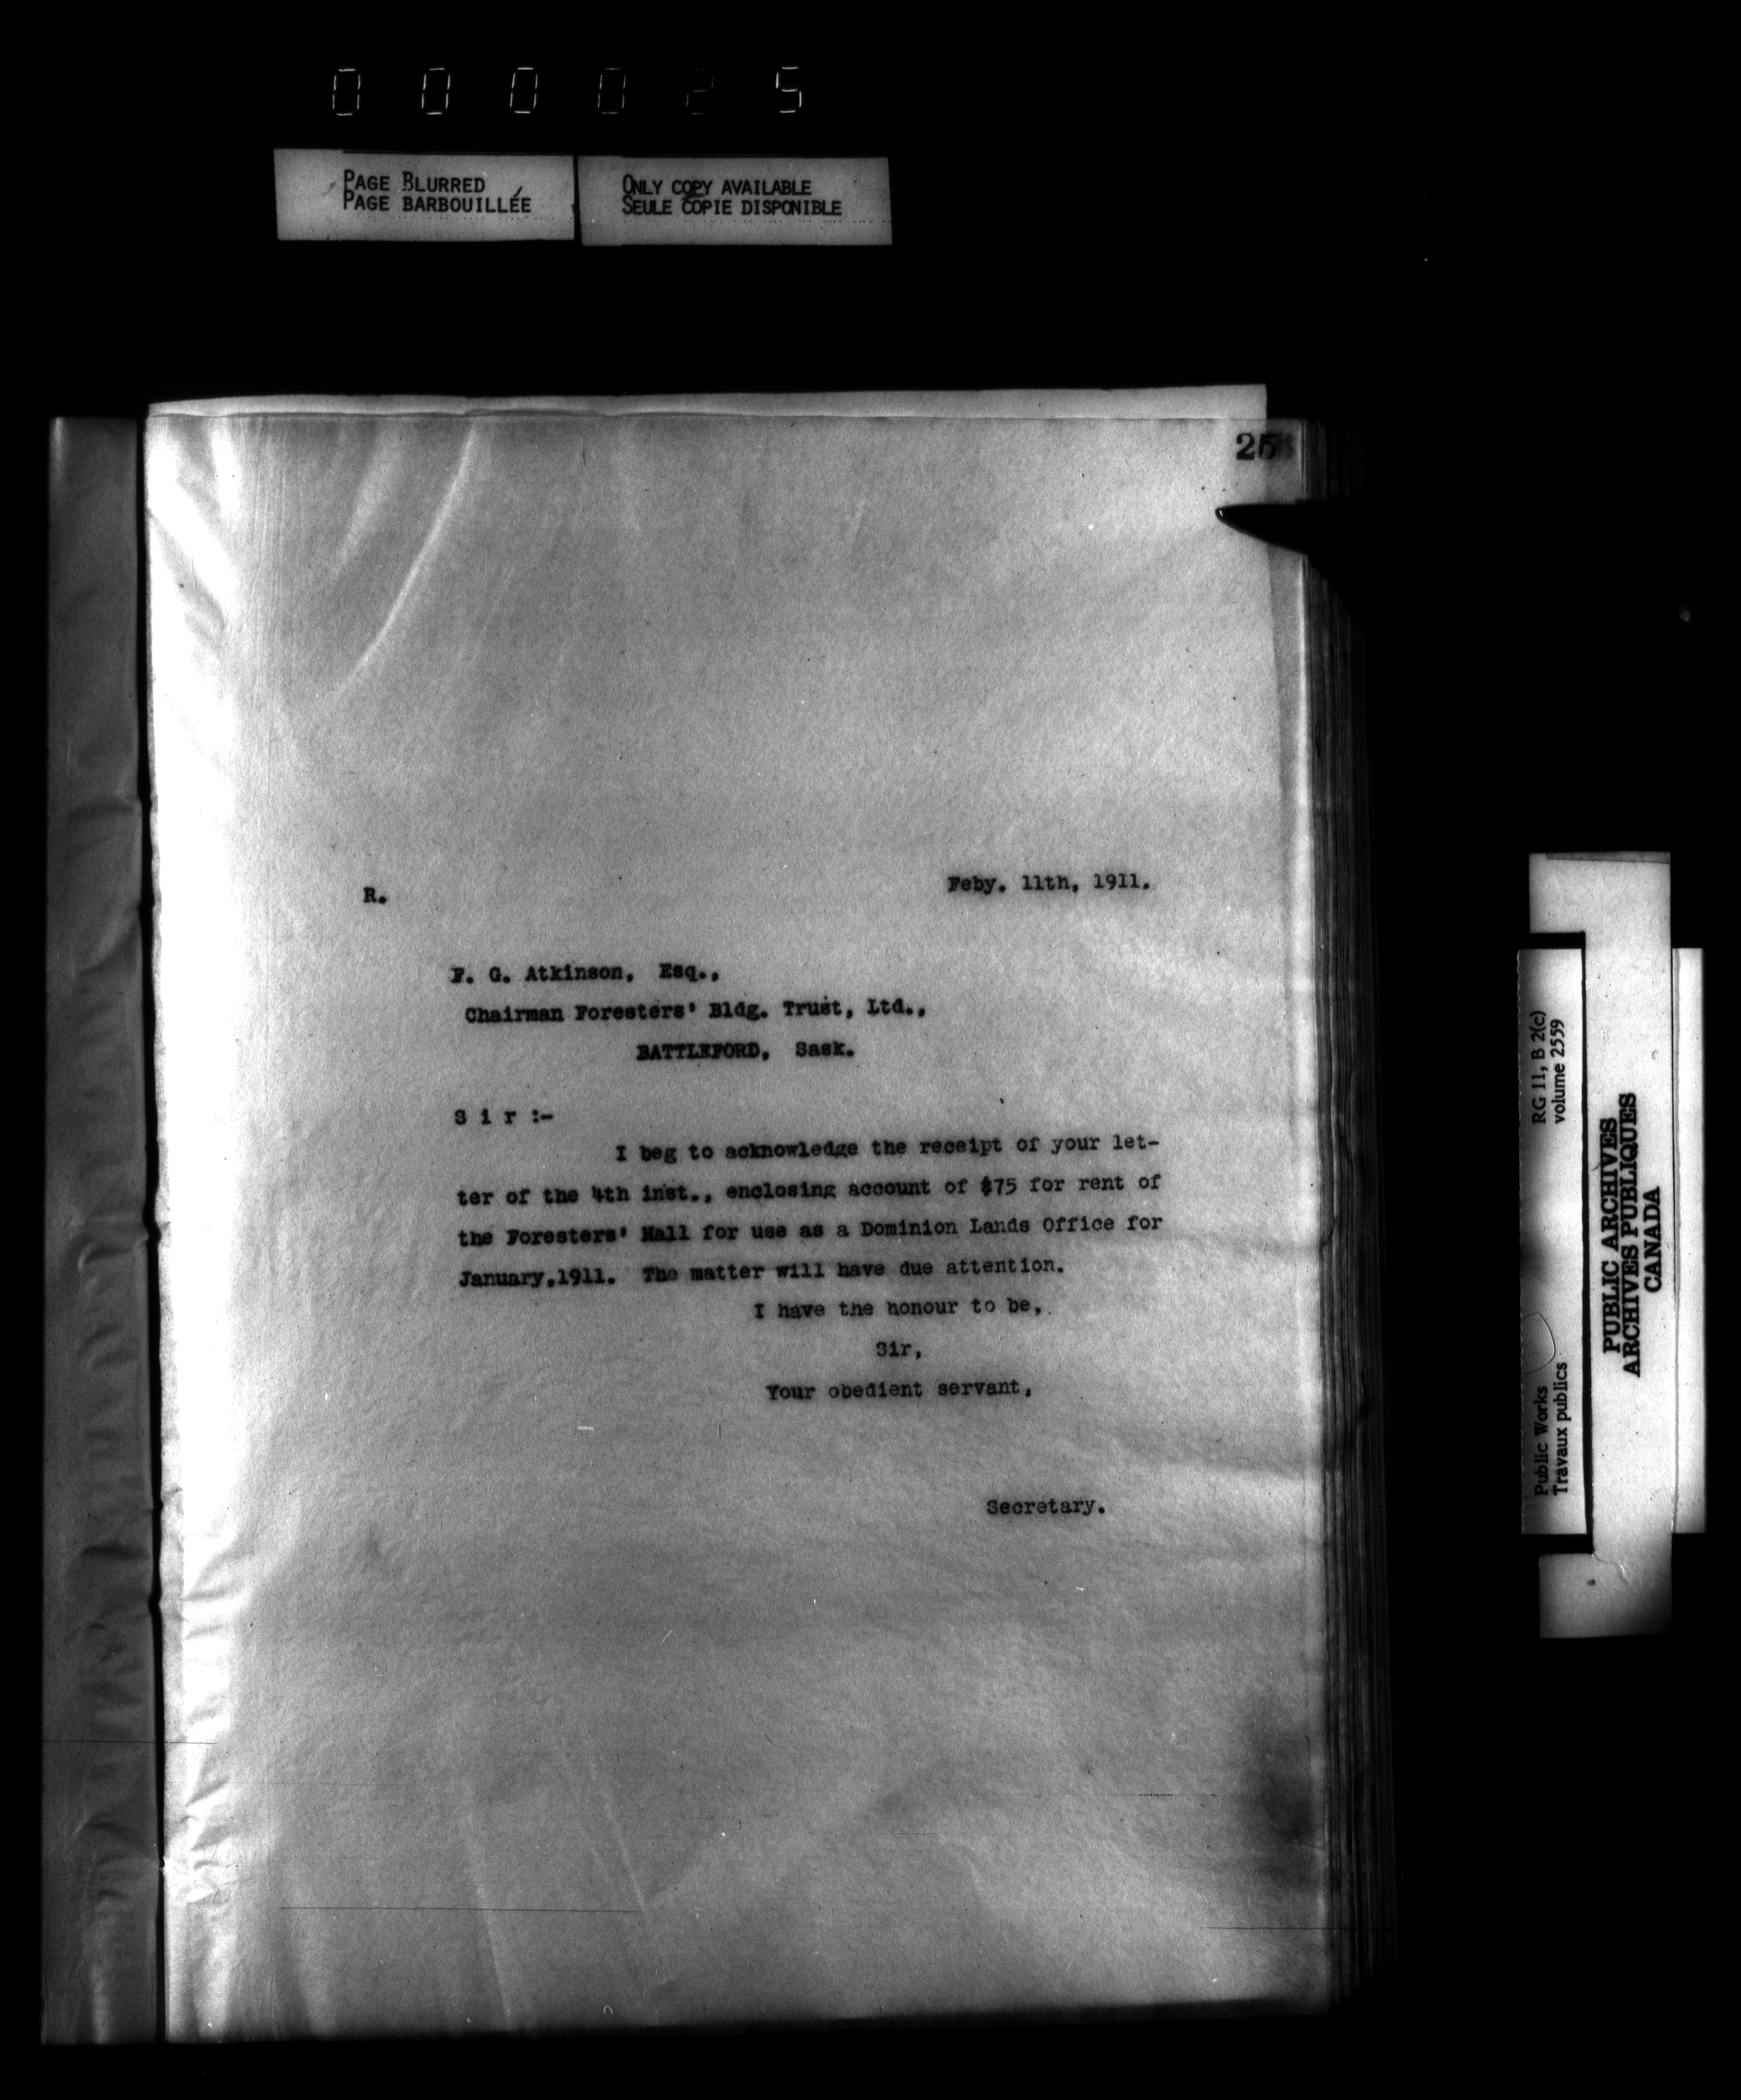 000025
PAGE BLURRED
PAGE BARBOUILLÉE
ONLY COPY AVAILABLE
SEULE COPIE DISPONIBLE
25
R.
Feby. 11th, 1911.
F. G. Atkinson, Esq.,
Chairman Foresters' Bldg. Trust, Ltd.,
BATTLEFORD, Sask.
S i r :-
I beg to acknowledge the receipt of your let-
ter of the 4th inst., enclosing account of $75 for rent of
the Foresters' Hall for use as a Dominion Lands Office for
January,1911. The matter will have due attention.
I have the honour to be,
Sir,
Your obedient servant,
Secretary.
RG 11, B 2(c)
volume 2559
Public Works
Travaux publics
PUBLIC ARCHIVES
ARCHIVES PUBLIQUES
CANADA